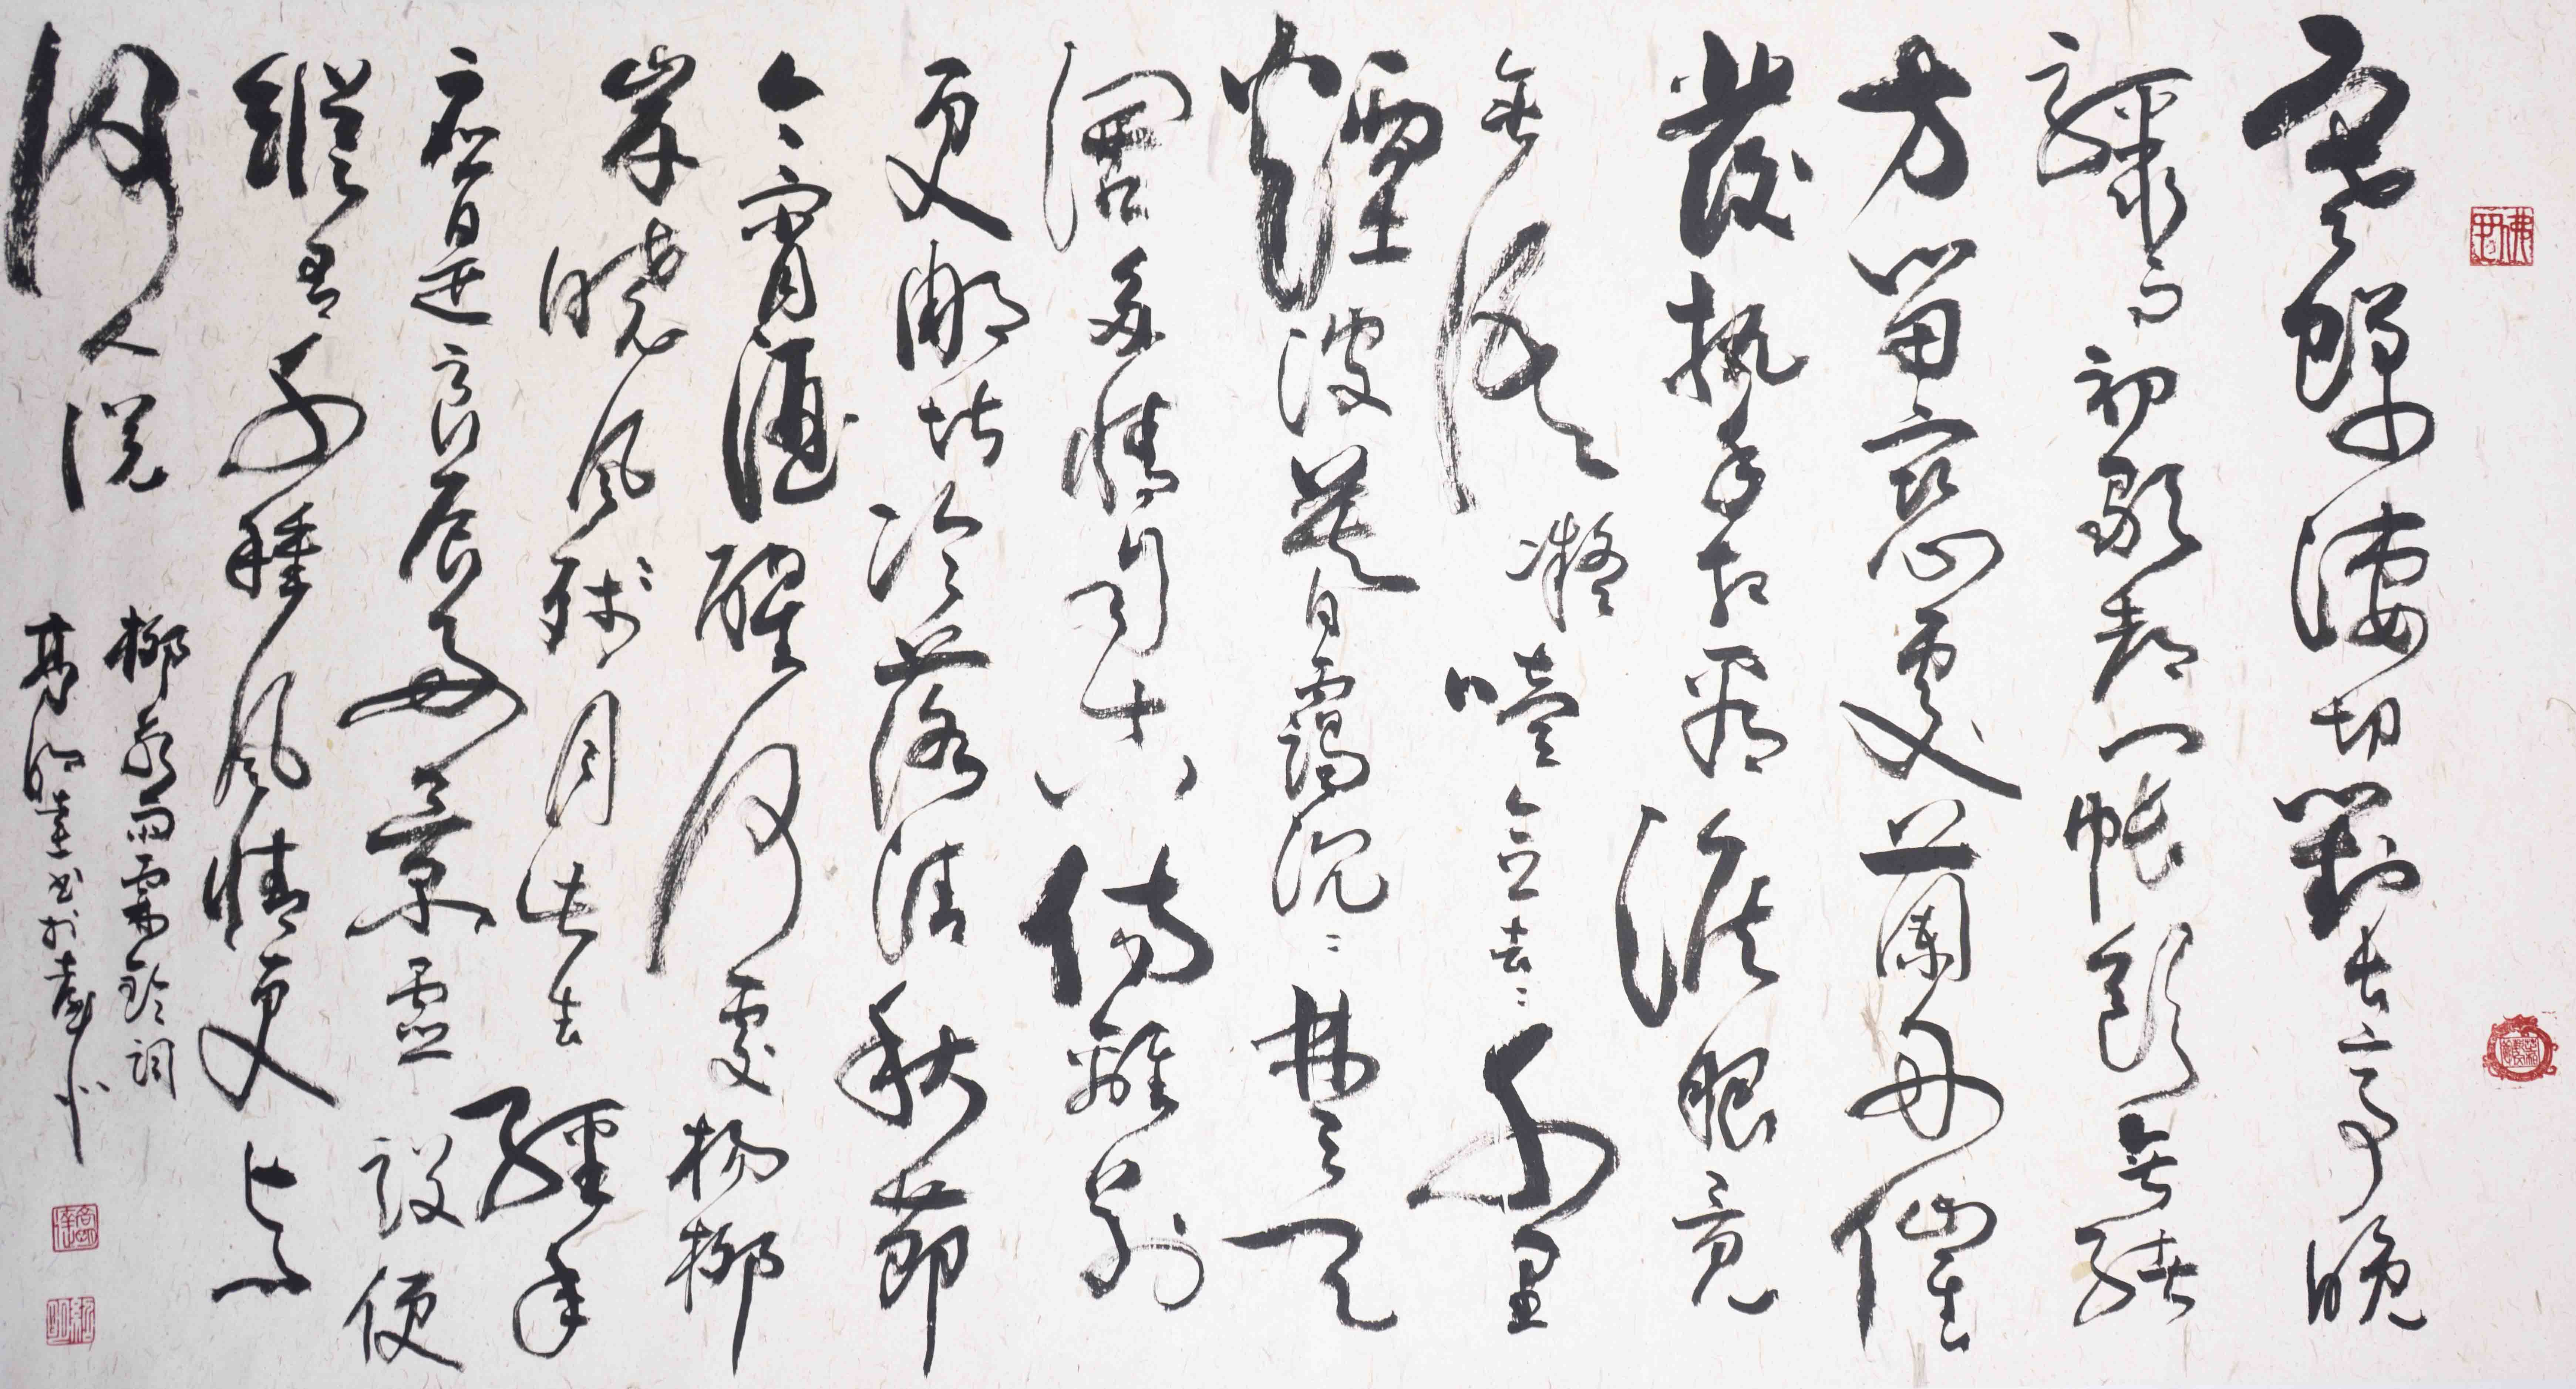 寒蟬淒切對長亭晚
驟雨初歇都門帳飲無緒
方留戀處蘭舟催
發執手相看淚眼竟
無語凝噎念去々千里
煙波暮靄沉々楚天
闊多情自古傷離別
更那堪冷落清秋節
今宵酒醒何處楊柳
岸曉風殘月此去經年
應是良辰好景虛設便
縱有千種風情更與
何人說
柳永雨霖鈴詞
書於